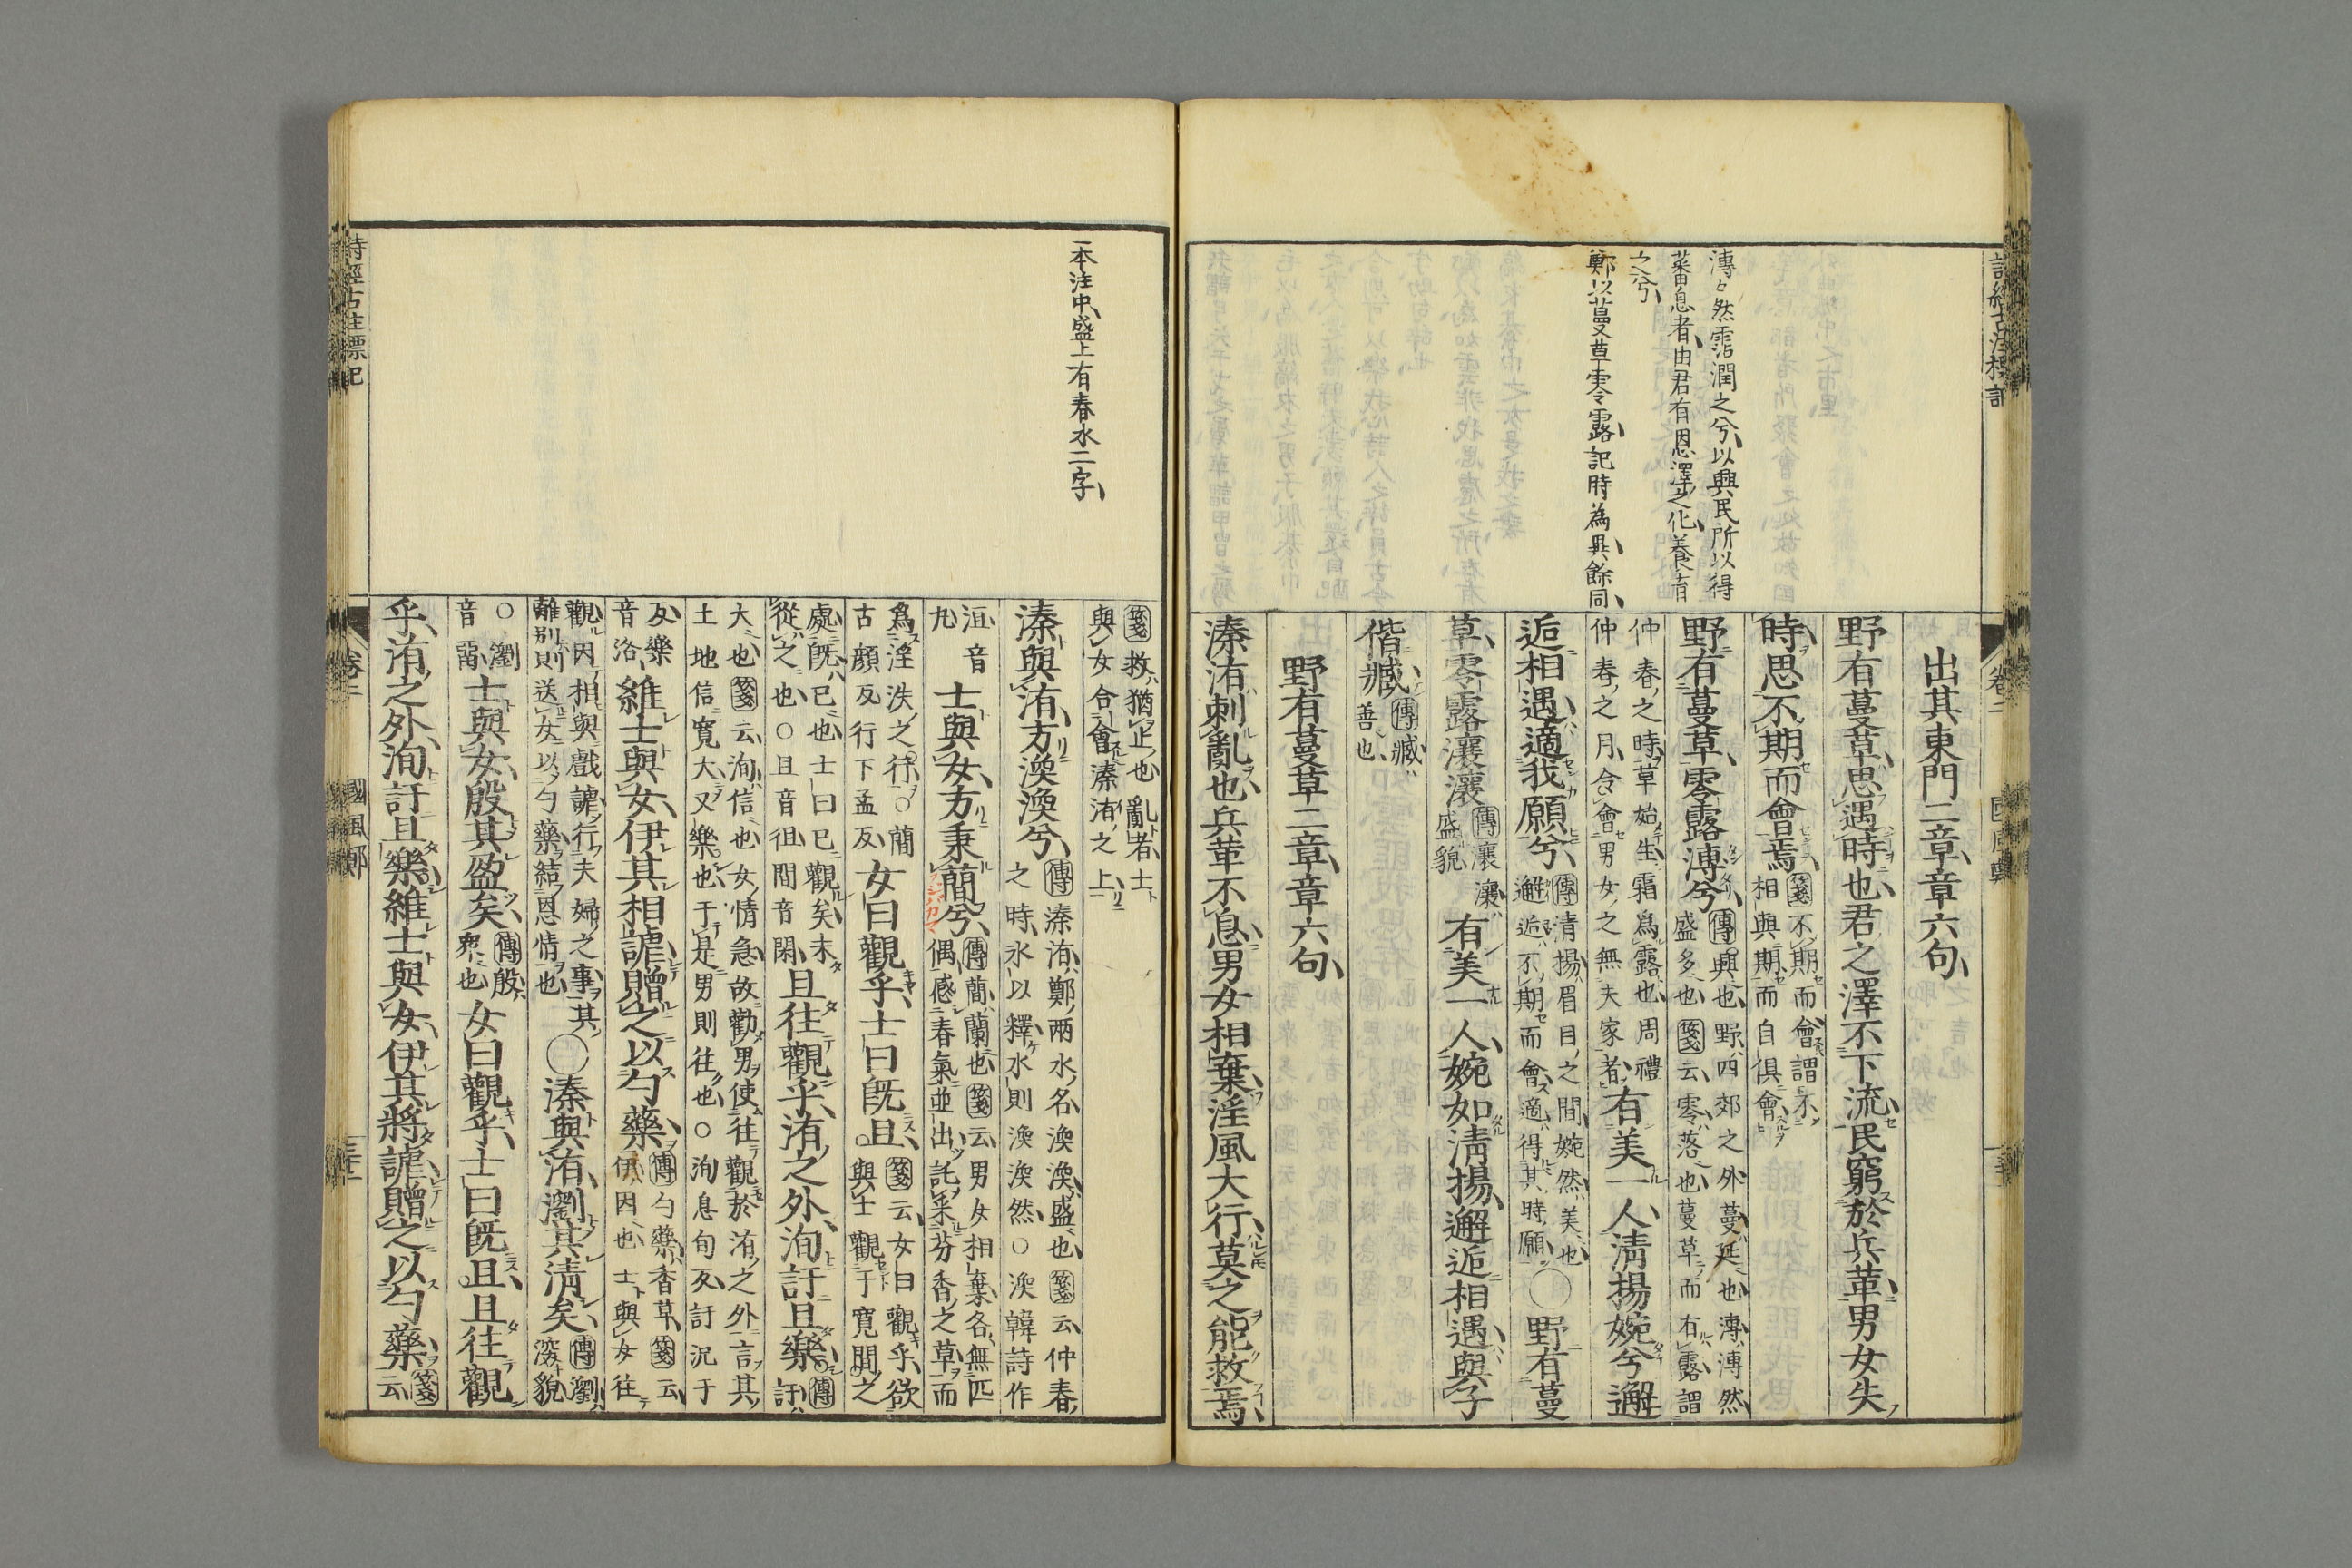 詩經古注標記
卷二
國風鄭
溥〻然霑潤之兮以興民所以得
蕃息者由君有因恩澤之化養育
之兮
鄭以蔓草零露記時為異餘同
出其東門二章章六句
野有蔓草思遇時也君之澤不下流民窮於兵革男女失
時思不期而會焉
箋不期而會謂不
相與期而自俱會
野有蔓草零露漙兮
傳興也野四郊之外蔓延也漙漙然
盛多也箋云零落也蔓草而有露謂
仲春之時草始生霜爲露也周禮
仲春之月令會男女之無夫家者
有美一人淸揚婉兮邂
逅相遇適我願兮
傳淸揚眉目之間婉然美也
邂逅不期而會適得其時願
○野有蔓
草零露瀼瀼
傳瀼瀼
盛貌
有美一人婉如淸揚邂逅相遇與子
偕臧
傳臧
善也
野有蔓草二章章六句
溱洧刺亂也兵革不息男女相棄淫風大行莫之能救焉
一本注中盛上有春水二字
箋救猶止也亂者士
與女合會溱洧之上
溱與洧方渙渙兮
傳溱洧鄭兩水名渙渙盛也箋云仲春
之時氷以釋水則渙渙然○渙韓詩作
洹音
丸
士與女方秉蕳兮
フジバカマ
傳蕳蘭也箋云男女相棄各無匹
偶感春氣並出託采芬香之草而
爲淫泆之行○蕳
古顏反行下孟反
女曰觀乎士曰旣且
箋云女曰觀乎欲
與士觀于寬閒之
處旣已也士曰已觀矣未
從之也○且音徂閒音閑
且往觀乎洧之外洵訏且樂
傳訏
大也箋云洵信也女情急故勸男使往觀於洧之外言其
土地信寬大又樂也于是男則往也○洵息旬反訏況于
反樂
音洛
維士與女伊其相謔贈之以勺藥
傳勺藥香草箋云
伊因也士與女往
觀因相與戲謔行夫婦之事其
離別則送女以勺藥結恩情也
○溱與洧瀏其淸矣
傳瀏
深貌
○瀏
音留
士與女殷其盈矣
傳殷
衆也
女曰觀乎士曰旣且且往觀
乎洧之外洵訏且樂維士與女伊其將謔贈之以勺藥
箋
云
詩經古注標記
卷二
國風鄭